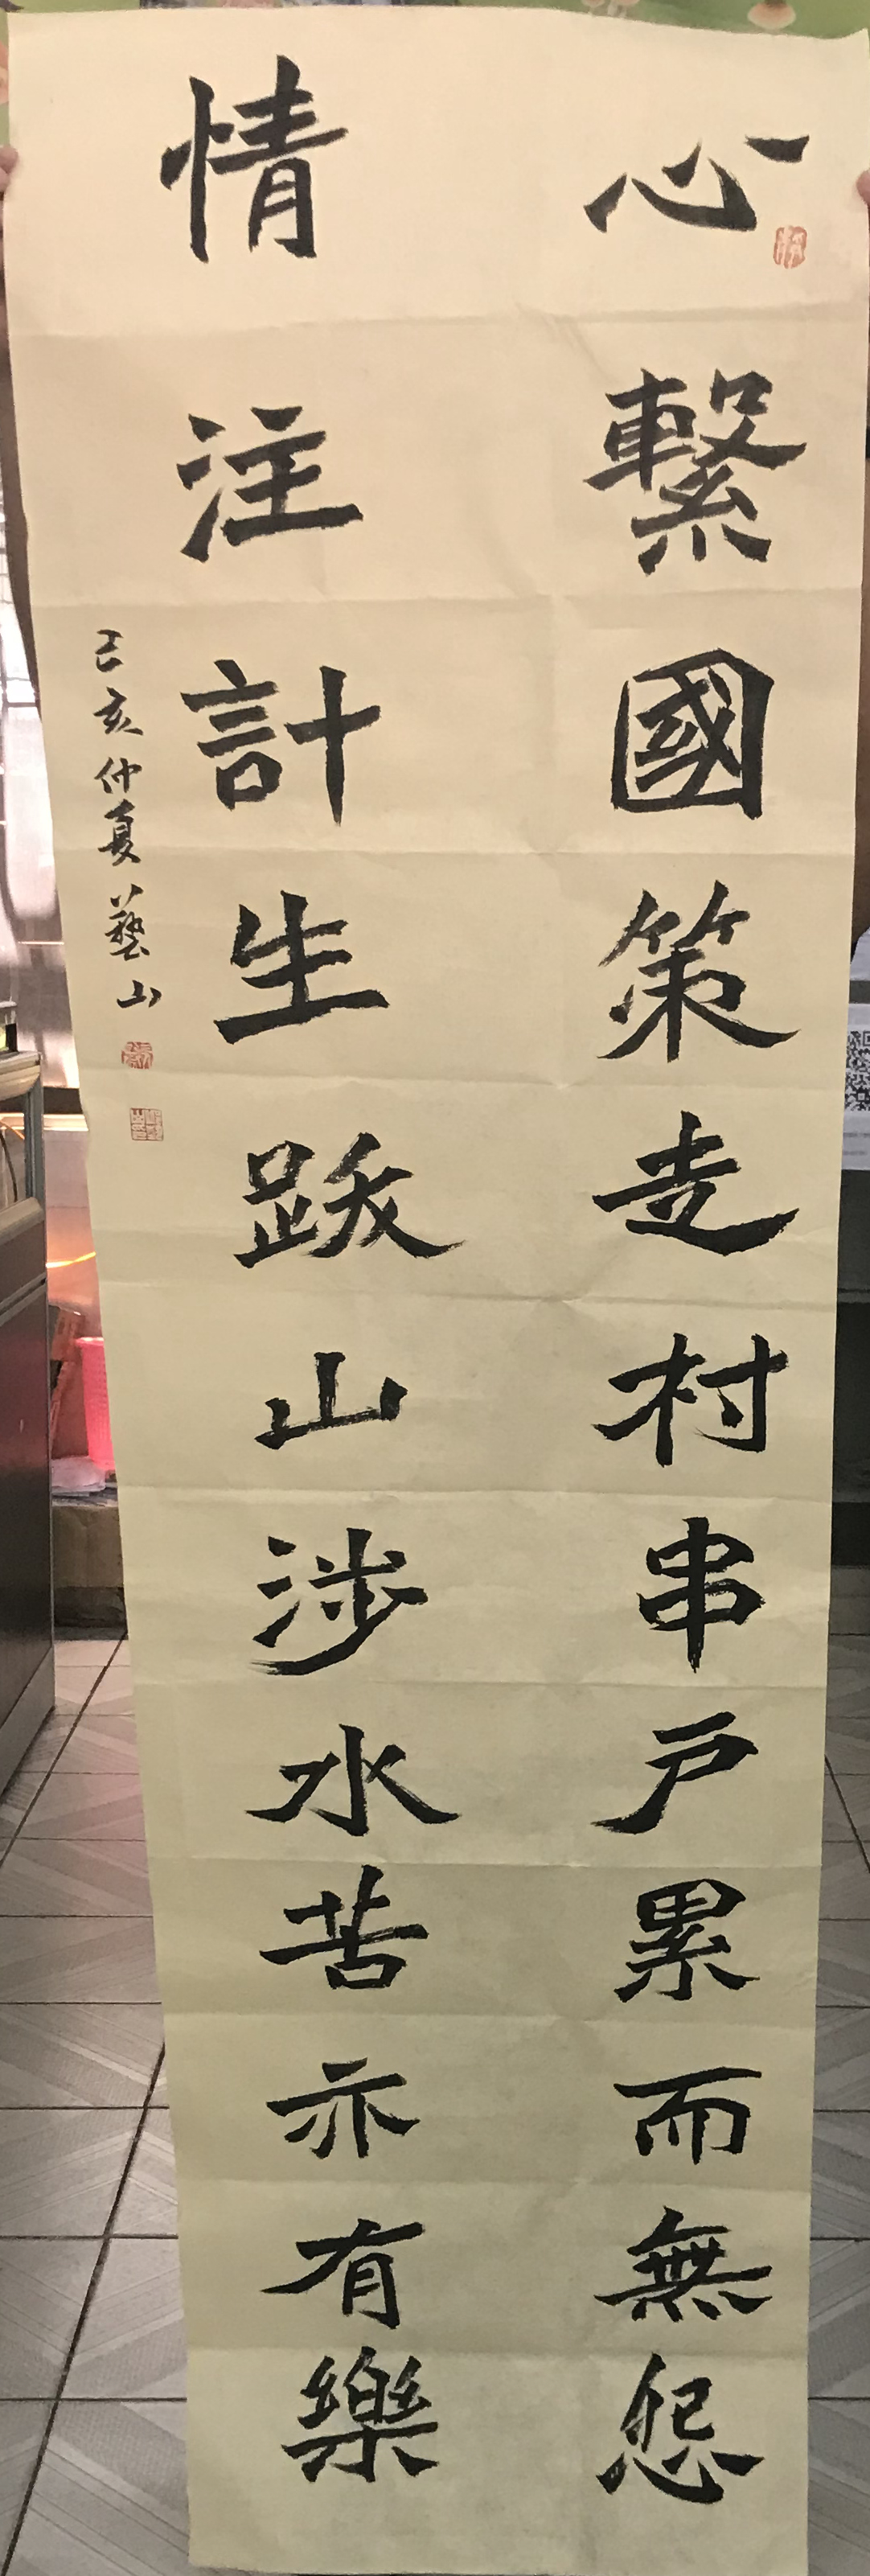 心繫國策走村串戶累而無怨
情注計生跋山涉水苦亦有樂
己亥仲夏藝山